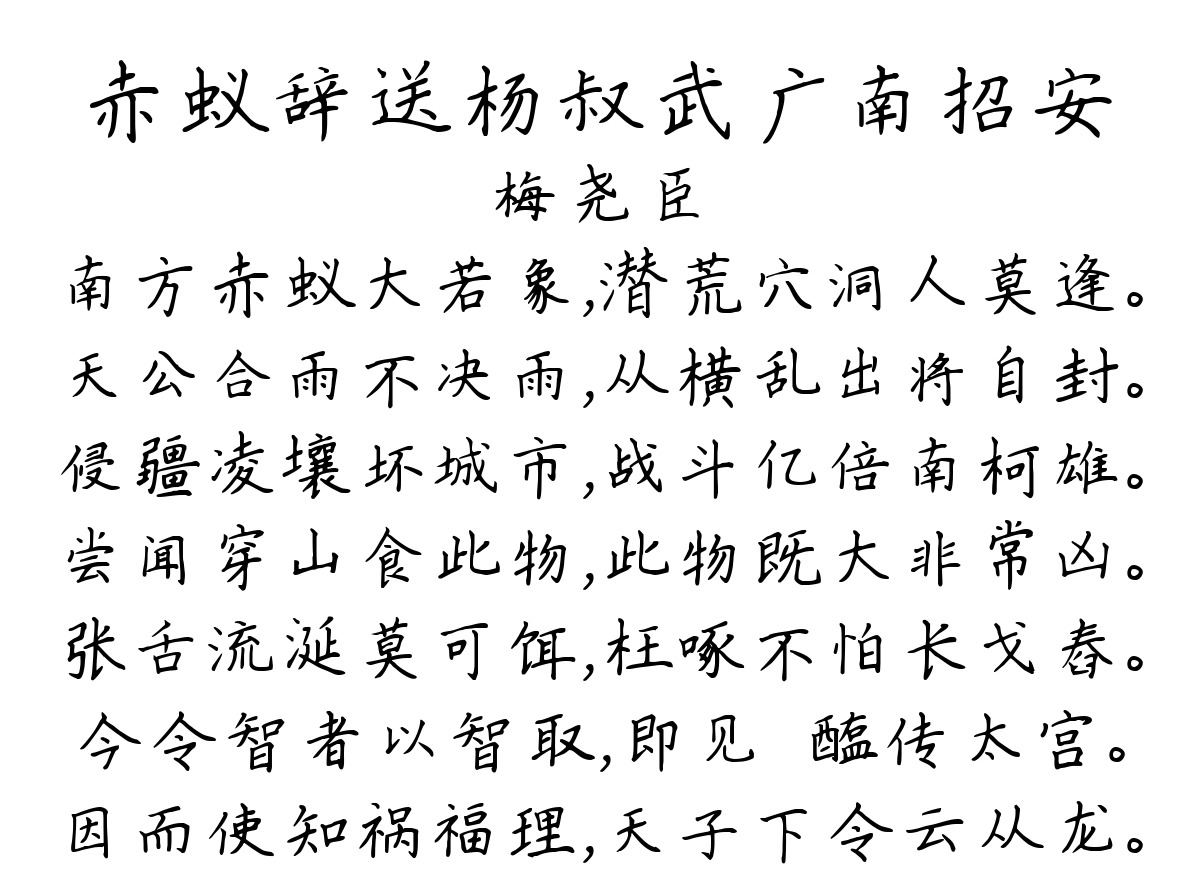 赤蚁辞送杨叔武广南招安
梅尧臣
南方赤蚁大若象,潜荒穴洞人莫逢。
天公合雨不决雨,从横乱出将自封。
侵疆凌壤坏城市,战斗亿倍南柯雄。
尝闻穿山食此物,此物既大非常凶。
张舌流涎莫可饵,枉啄不怕长戈舂。
今令智者以智取,即见 醢传太宫。
因而使知祸福理,天子下令云从龙。